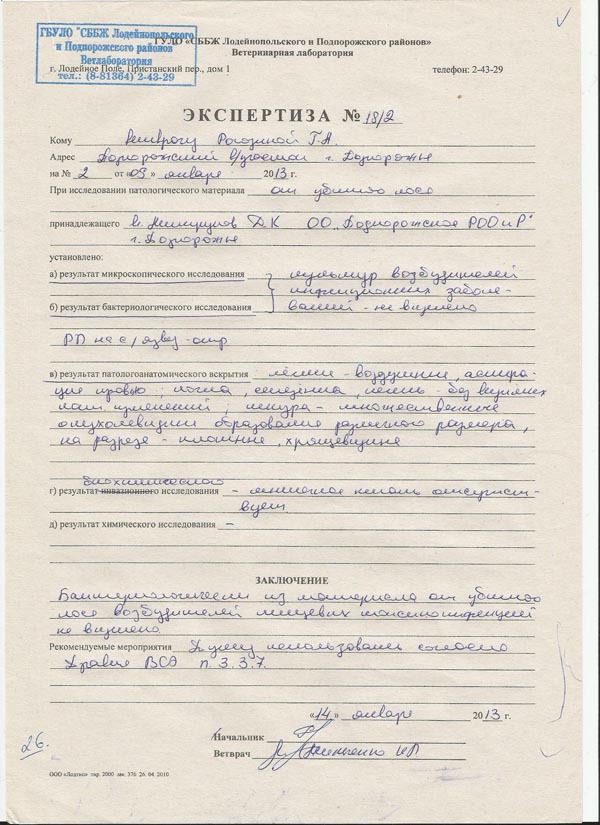 ГБУЛО "СББЖ Лодейнопольского
и Подпорожского районов
Ветлаборатория
тел.: (8-81364) 2-43-29
ГУЛО «СББЖ Лодейнопольского и Подпорожского районов»
Ветеринарная лаборатория
г. Лодейное Поле, Пристанский пер., дом 1 телефон: 2-43-29
ЭКСПЕРТИЗА № 18/2
Кому Ветврачу Рогозиной Г.А.
Адрес Подпорожский в/участок г. Подпорожье
на № 2 от «09» января 2013 г.
При исследовании патологического материала от убитого лося
принадлежащего ОО "Подпорожское РООиР"
г. Подпорожье
установлено:
а) результат микроскопического исследования культур возбудителей
инфекционных заболе-
б) результат бактериологического исследования ваний - не выделено
РП на с/язву - отр
в) результат патологоанатомического вскрытия легкие - воздушные, аспира-
ция кровью; почка, селезенка, печень - без видимых
пат. изменений; шкура - множественные
опухолевидные образования различного размера,
на разрезе - плотные, хрящевидные
биохимического
г) результат инвазионного исследования - мышечная окоченелость отсутст-
вует.
д) результат химического исследования –
ЗАКЛЮЧЕНИЕ
Бактериологически из материала от убитого
лося возбудителей пищевых токсикоинфекций
не выделено
Рекомендуемые мероприятия Тушу использовать согласно
Правил ВСЭ п. 3.3.7.
«14» января 2013 г.
Начальник
Ветврач
26.
ООО «Лодтис» тир. 2000 зак. 376 26. 04. 2010